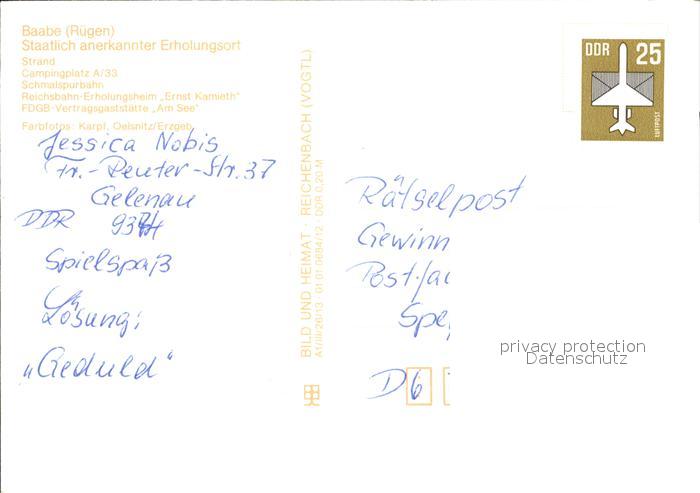 Baabe (Rügen)
Staatlich anerkannter Erholungsort
Strand
Campingplatz A/33
Schmalspurbahn
Reichsbahn-Erholungsheim „Ernst Kamieth"
FDGB-Vertragsgaststätte „Am See"
Farbfotos: Karpf, Oelsnitz/Erzgeb.
Jessica Nobis
Fr.-Reuter-Str. 37
Gelenau
DDR
Spielspaß
Lösung:
„Geduld"
BILD UND HEIMAT · REICHENBACH (VOGTL)
A1/III/26/13 · 01 01 0684/12 · DDR 0,20 M
DDR 25
LUFTPOST
Rätselpost
Gewinn
Post
Spe
D 6
privacy protection
Datenschutz